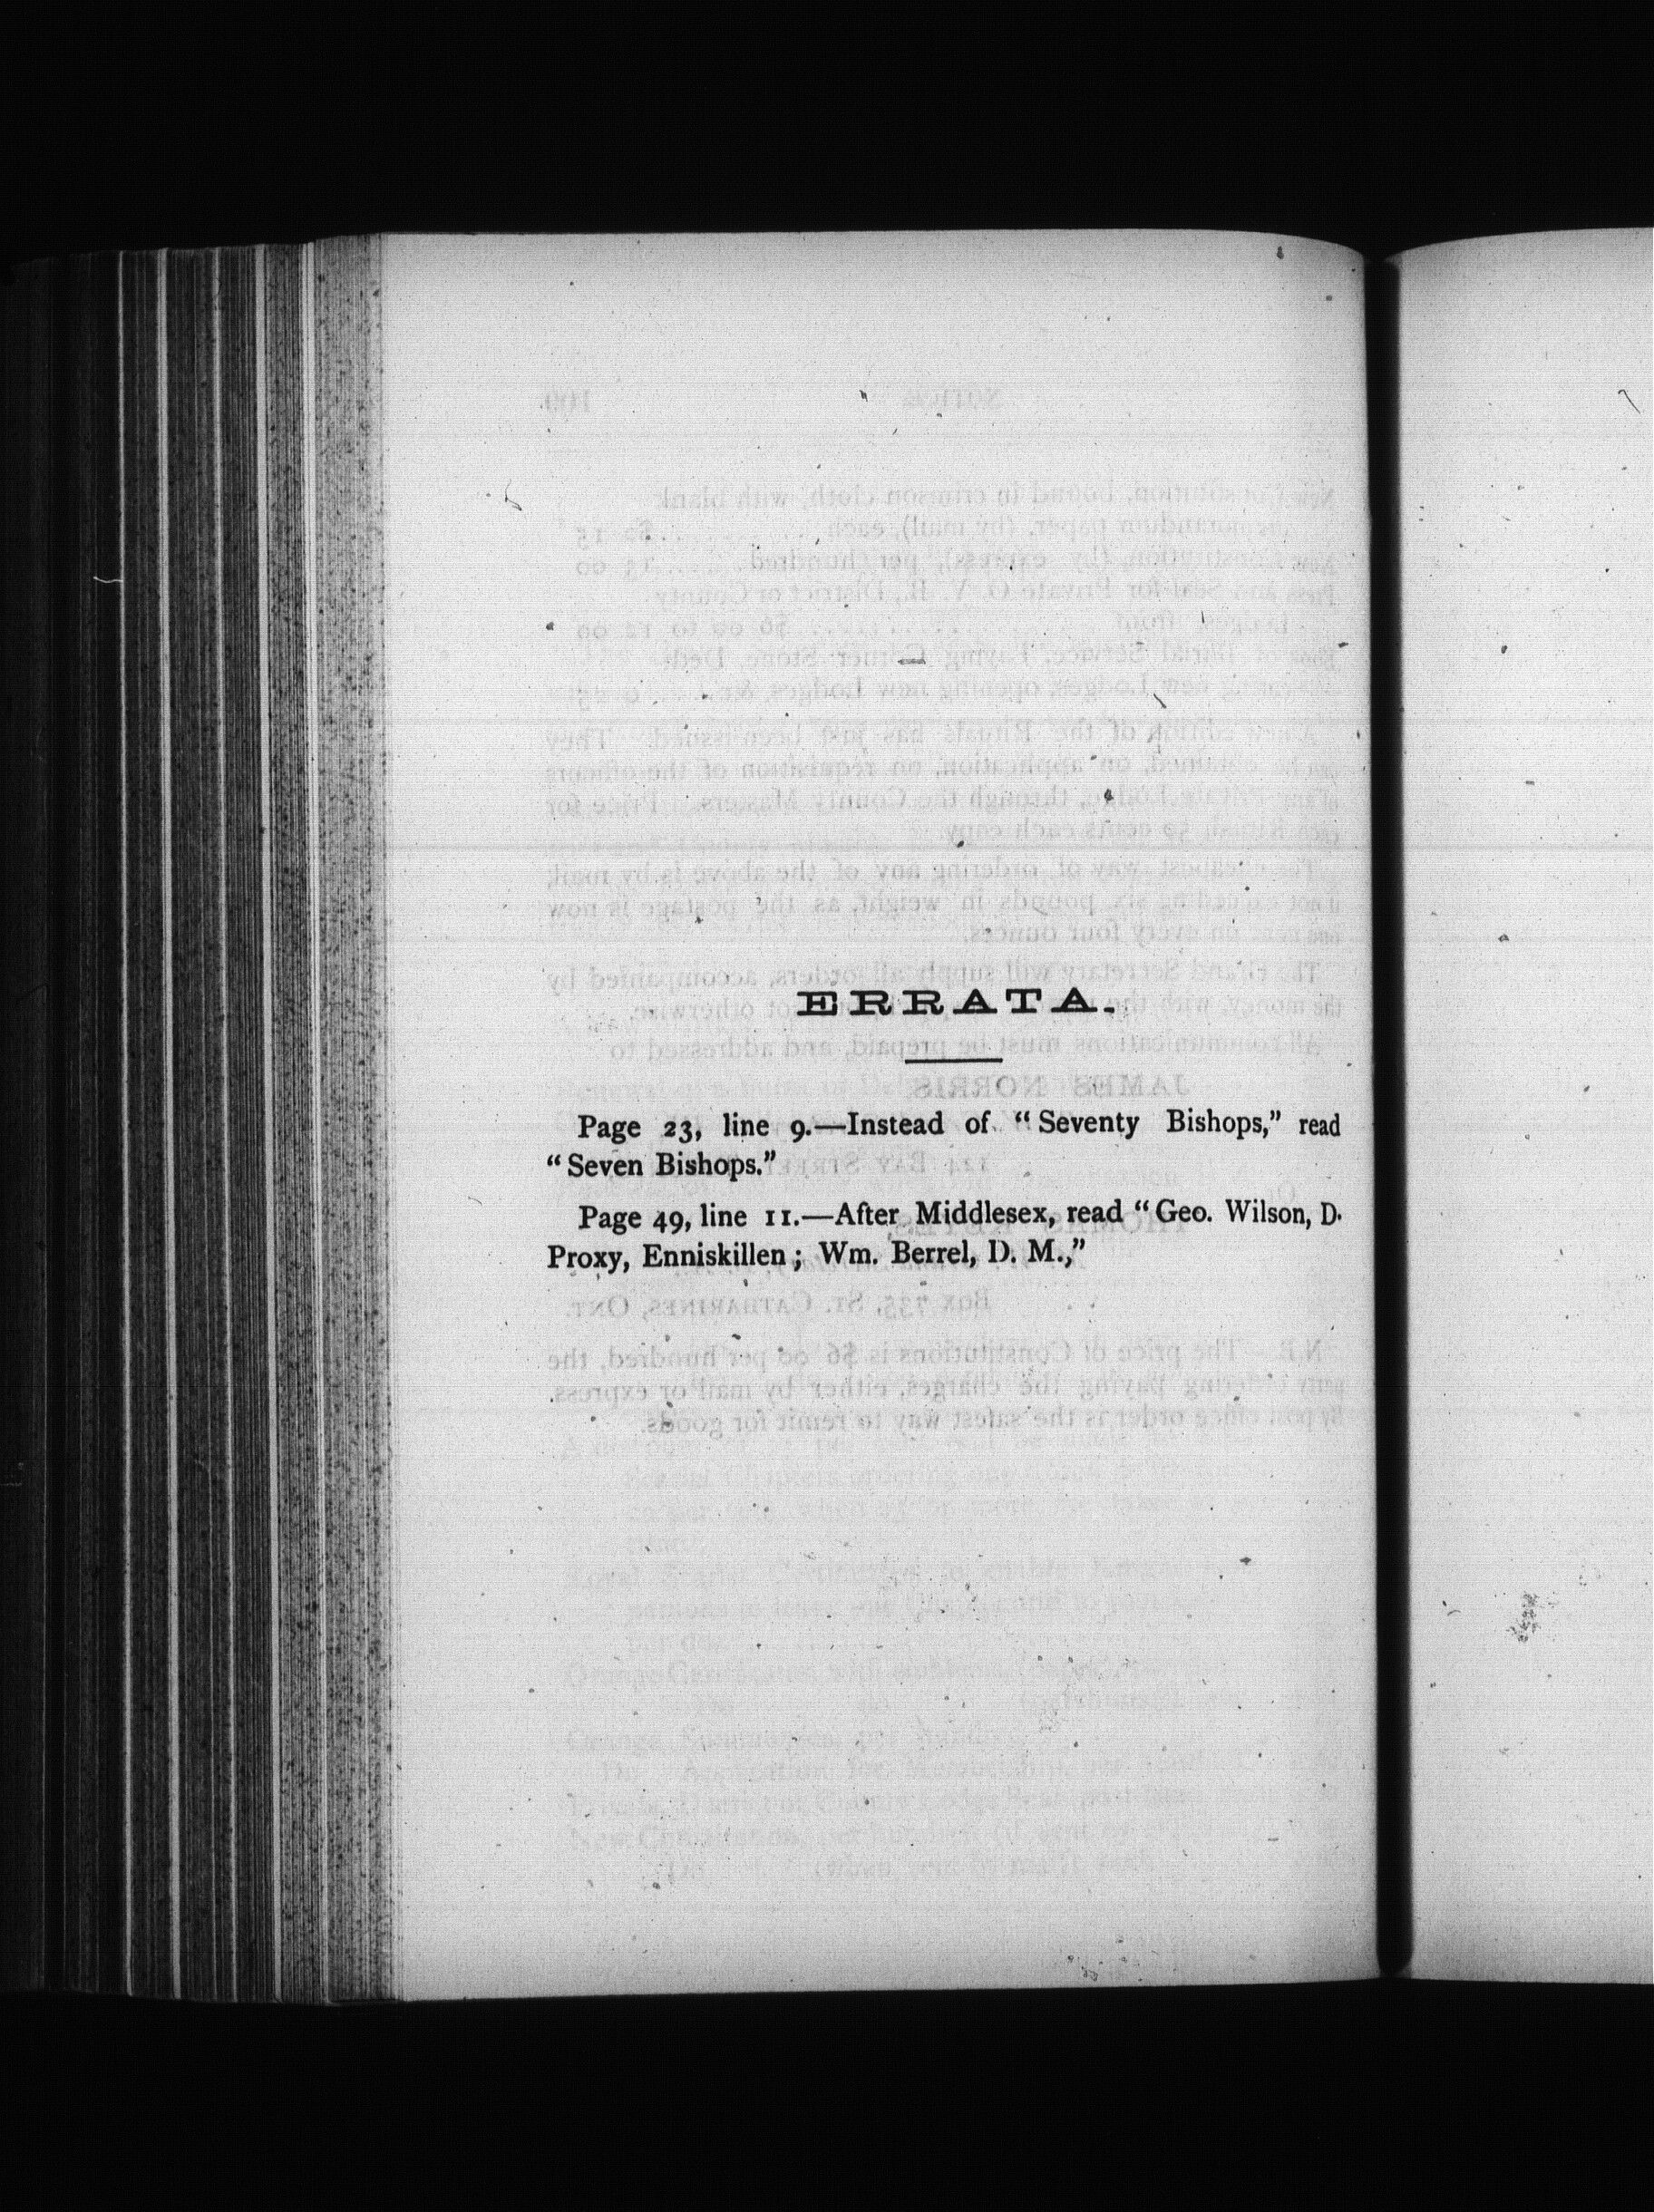 ERRATA.
Page 23, line 9.—Instead of "Seventy Bishops," read
"Seven Bishops."
Page 49, line 11.—After Middlesex, read "Geo. Wilson, D.
Proxy, Enniskillen; Wm. Berrel, D. M.,"